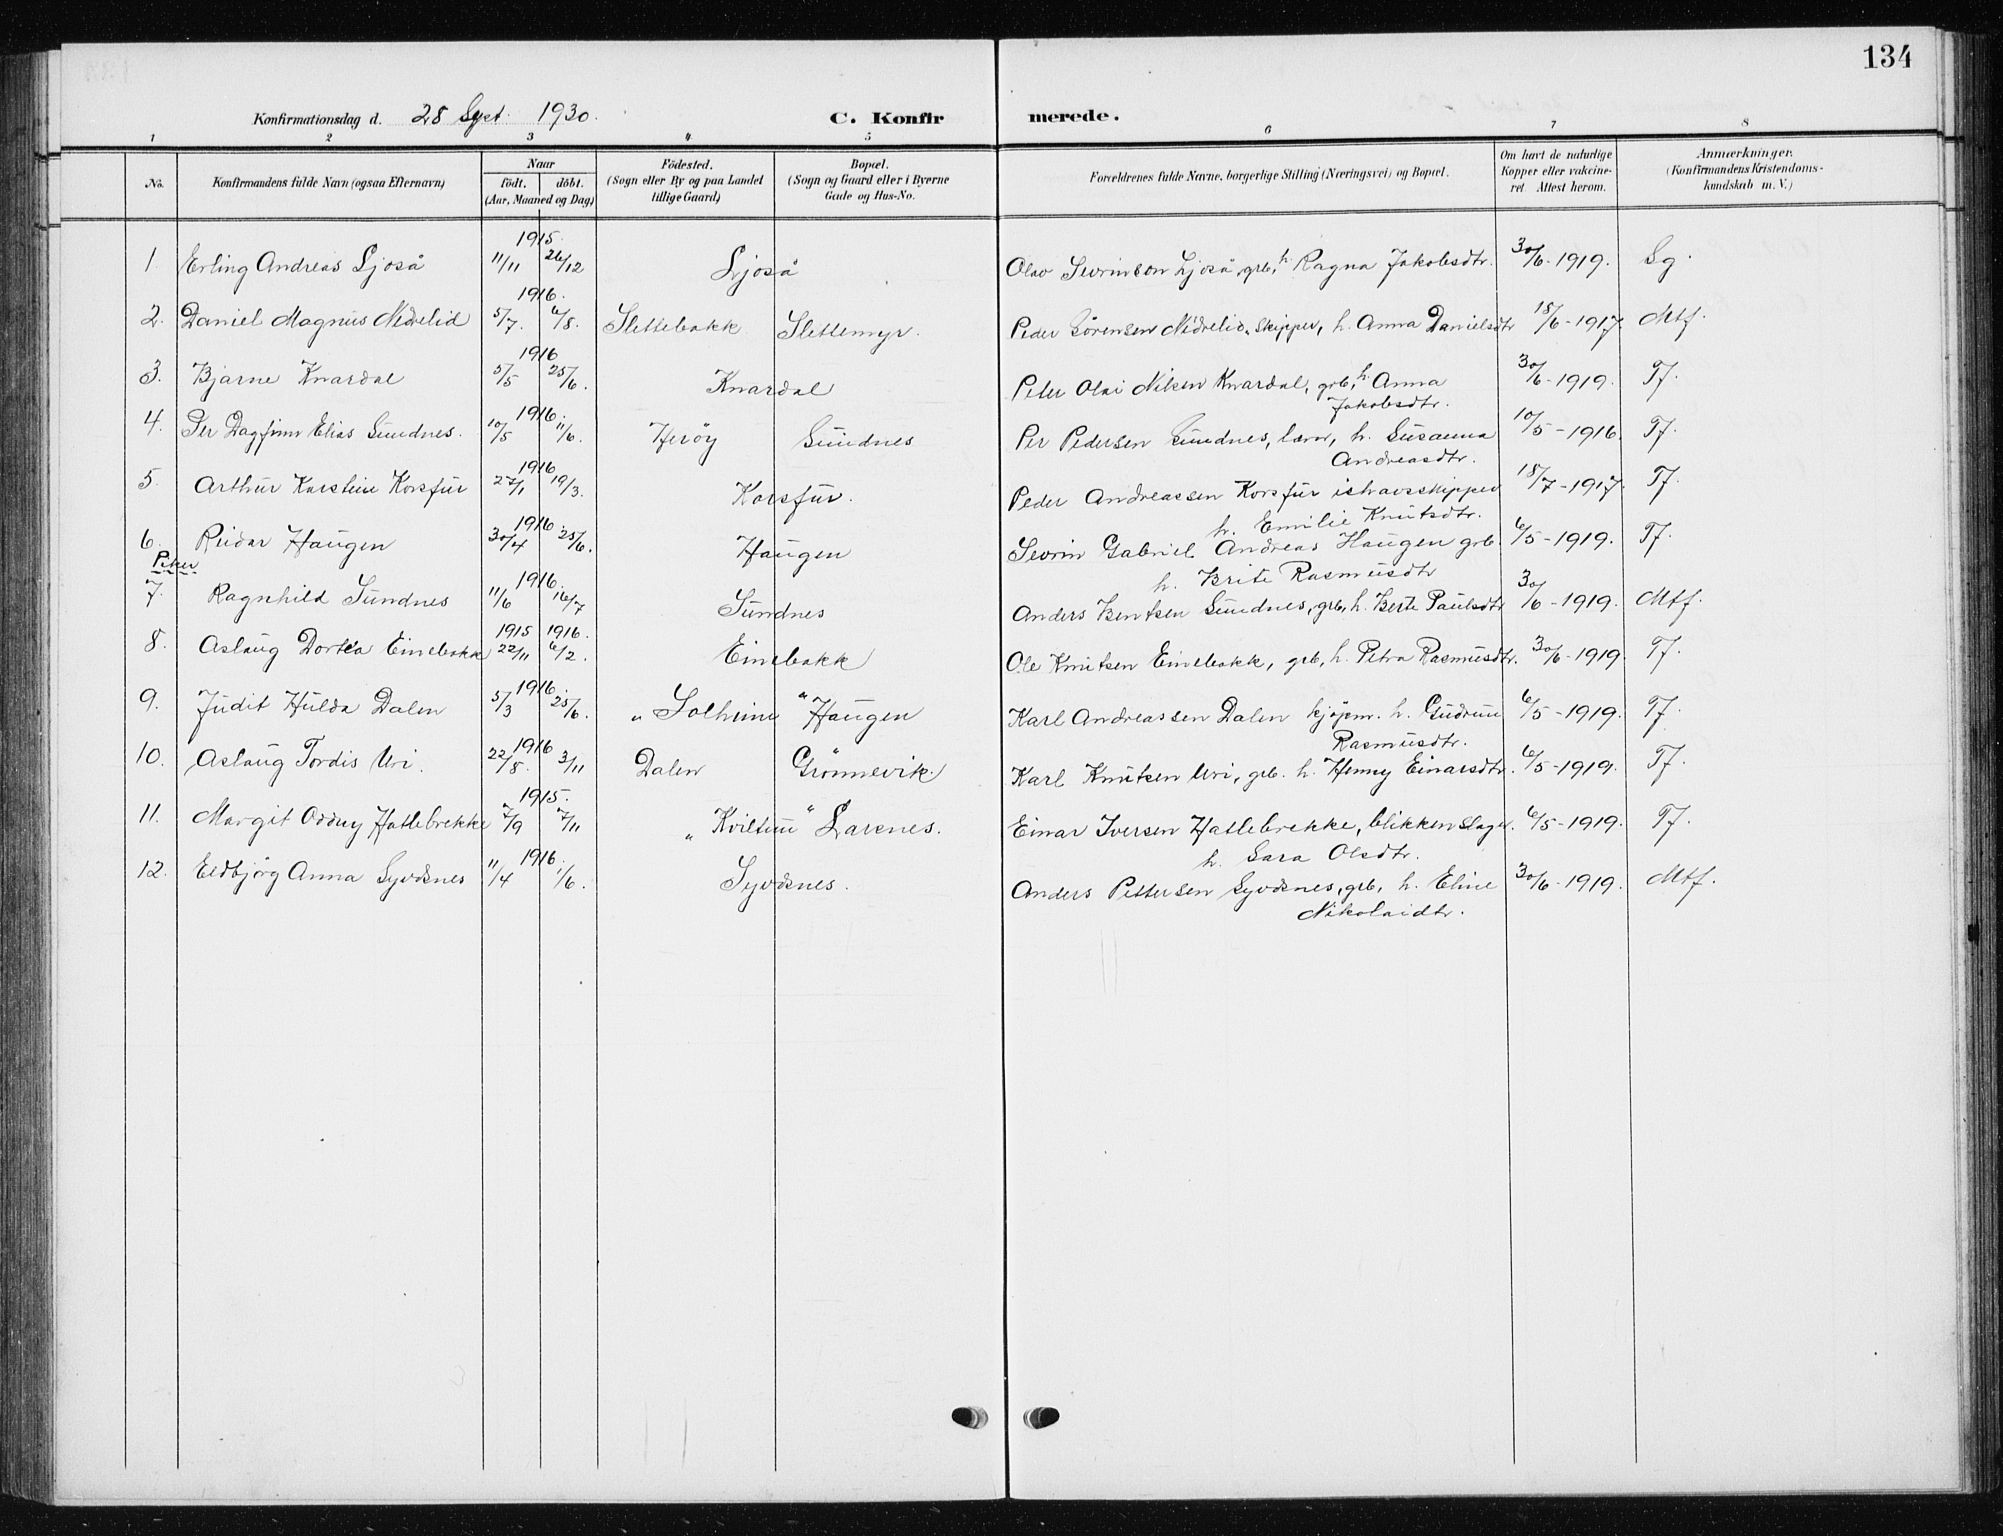 134
Konfirmationsdag d. 28 Sept. 1930. C. Konfirmerede.
1 2 3 4 5 6 7 8
No. Konfirmandens fulde Navn (ogsaa Efternavn) Naar födt. döbt. (Aar, Maaned og Dag) Födested. (Sogn eller By og paa Landet tillige Gaard) Bopæl. (Sogn og Gaard eller i Byerne Gade og Hus-No. Forældrenes fulde Navne, borgerlige Stilling (Næringsvei) og Bopæl. Om havt de naturlige Kopper eller vakcineret. Attest herom. Anmærkninger. (Konfirmandens Kristendomskundskab m. V.)
1915.
1. Erling Andreas Ljoså 11/11 26/12 Ljoså Olav Sevrinson Ljoså, grb, h. Ragna Jakobsdtr. 30/6-1919. Sg.
1916.
2. Daniel Magnus Nedrelid 5/7. 6/8. Slettebakk Slettemyr. Peder Sørensen Nedrelid, skipper, h. Anna Danielsdtr 18/6-1917. Mtf.
1916
3. Bjarne Knardal 5/5 25/6. Knardal Peter Olai Nilsen Knardal, grb, h. Anna 30/6-1919. Tf.
Jakobsdtr.
1916.
4. Per Dagfinn Elias Sundnes. 10/5 11/6. Herøy Sundnes Per Pedersen Sundnes, lærer, h. Susanna 10/5-1916. Tf.
Andreasdtr.
1916
5. Arthur Karstein Korsfur 27/1 19/3. Korsfur. Peder Andreassen Korsfur ishavsskipper 18/7-1917. Tf.
h. Emilie Knutsdtr.
1916.
6. Reidar Haugen 30/4 25/6. Haugen Sevrin Gabriel Andreas Haugen grb. 6/5-1919. Tf.
h. Brite Rasmusdtr
Piker
1916.
7. Ragnhild Sundnes 11/6 16/7 Sundnes Anders Bentsen Sundnes, grb, h. Berte Paulsdtr 30/6-1919. Mtf.
1915 1916.
8. Aslaug Dortea Einebakk 22/11 6/2. Einebakk Ole Knutsen Einebakk, grb, h. Petra Rasmusdtr. 30/6-1919. Tf.
1916.
9. Judit Hulda Dalen 5/3 25/6. "Solheim" Haugen Karl Andreassen Dalen kjøpm. h. Gudrun 6/5-1919. Tf.
Rasmusdtr.
1916
10. Aslaug Tordis Uri. 22/8. 3/11 Dalen Grønnevik. Karl Knutsen Uri, grb. h. Henny Einarsdtr. 6/5-1919. Tf.
1915.
11. Margit Oddny Hatlebrekke 7/9 7/11 "Kviltun" Larsnes. Einar Iversen Hatlebrekke, blikkenslager. 6/5-1919. Tf.
h. Sara Olsdtr.
1916.
12. Eldbjørg Anna Syvdsnes 11/4 1/6. Syvdsnes. Anders Pettersen Syvdsnes, grb, h. Eline 30/6-1919. Mtf.
Nikolaidtr.